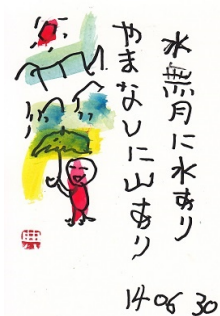 水無月に水あり
やまなしに山あり
14 06 30